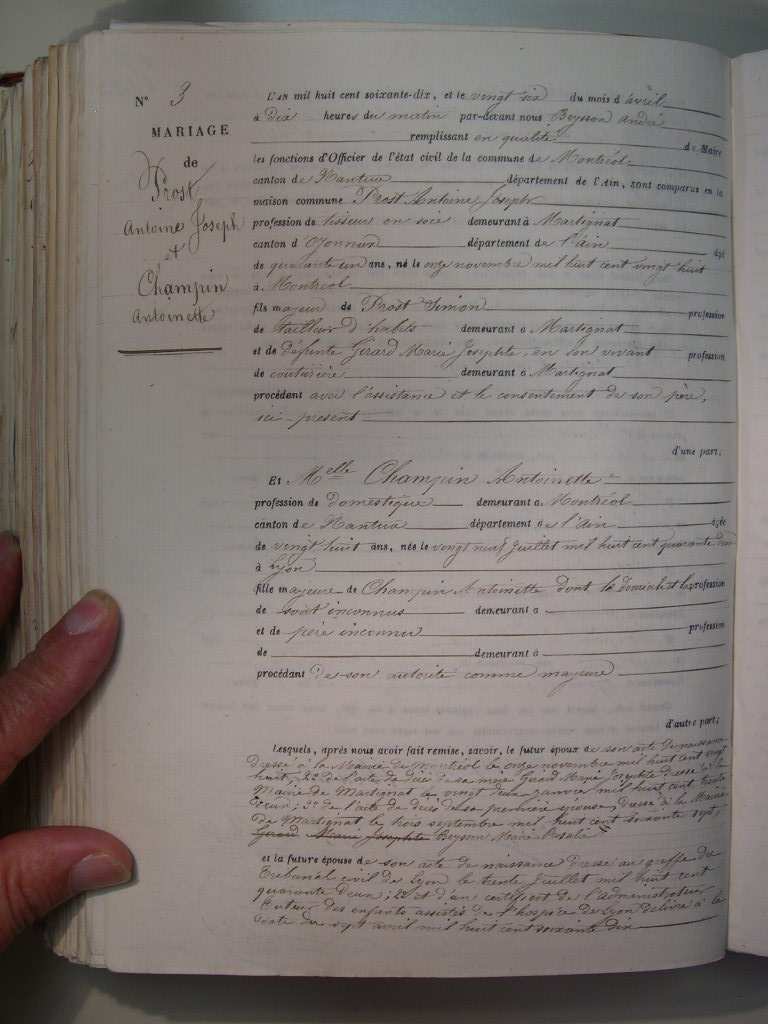 N° 3
MARIAGE
de
Prost
Antoine Joseph
et
Champin
Antoinette
L'AN mil huit cent soixante-dix, et le vingt six du mois d'avril
à dix heures du matin par-devant nous Beysson André
remplissant en qualité de Maire
les fonctions d'Officier de l'état civil de la commune de Montréal
canton de Nantua département de l'Ain, sont comparus en la
maison commune Prost Antoine Joseph
profession de tisseur en soie demeurant à Martignat
canton d'Oyonnax département de l'ain âgé
de quarante un ans, né le onze novembre mil huit cent vingt huit
à Montréal
fils majeur de Prost Simon profession
de tailleur d'habits demeurant à Martignat
et de défunte Girard Marie Josephte, en son vivant profession
de couturière demeurant à Martignat
procédant avec l'assistance et le consentement de son père,
ici présent
d'une part;
Et Melle Champin Antoinette
profession de domestique demeurant à Montréal
canton de Nantua département de l'ain âgée
de vingt huit ans, née le vingt neuf juillet mil huit cent quarante un
à Lyon
fille majeure de Champin Antoinette dont le domicile et la profession
de sont inconnus demeurant à
et de père inconnu profession
de demeurant à
procédant de son autorité comme majeure
d'autre part;
Lesquels, après nous avoir fait remise, savoir, le futur époux de son acte de naissance
dressé à la Mairie de Montréal le onze novembre mil huit cent vingt
huit; 2° de l'acte de décès de sa mère Girard Marie Josephte dressé à la
Mairie de Martignat le vingt deux janvier mil huit cent trente
deux; 3° de l'acte de décès de sa première épouse, dressé à la Mairie
de Martignat le trois septembre mil huit cent soixante sept,
Girard Marie Josephte Beysson Marie Rosalie
et la future épouse de son acte de naissance dressé au greffe du
Tribunal civil de Lyon le trente juillet mil huit cent
quarante deux; 2° et d'un certificat de l'Administrateur
Tuteur des enfants assistés de l'hospice de Lyon délivré à la
date du sept avril mil huit cent soixante dix